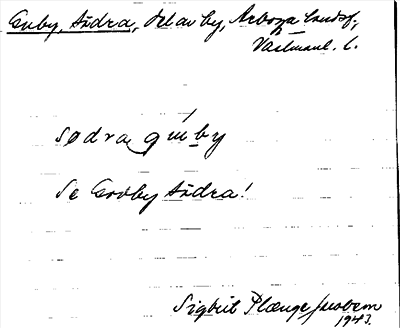 Enby, Södra, del av by, Arboga landsf.,
Västmanl. l.
södra, gúnby
Se Godby Södra!
Sigbrit Plænge Jacobson
1943.